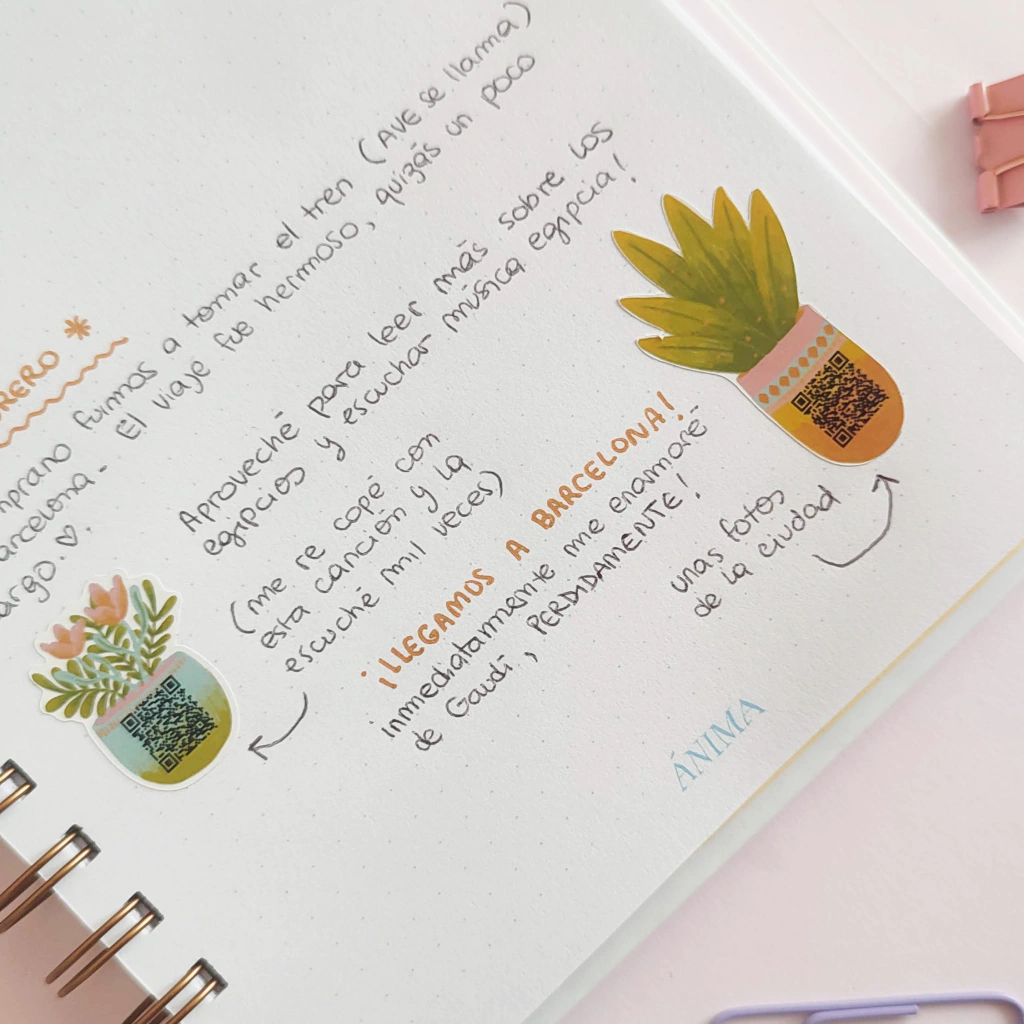 RERO
fuimos a tomar el tren (AVE se llama)
arcelona- El viaje fue hermoso, quizás un poco
argo.
Aproveché para leer más sobre los
egipcios y escuchar música egipcia!
(me re copé con
esta canción y la
escuché mil veces)
¡LLEGAMOS A BARCELONA!
inmediatamente me enamoré
de Gaudí, PERDIDAMENTE!
unas fotos
de la ciudad
ÁNIMA